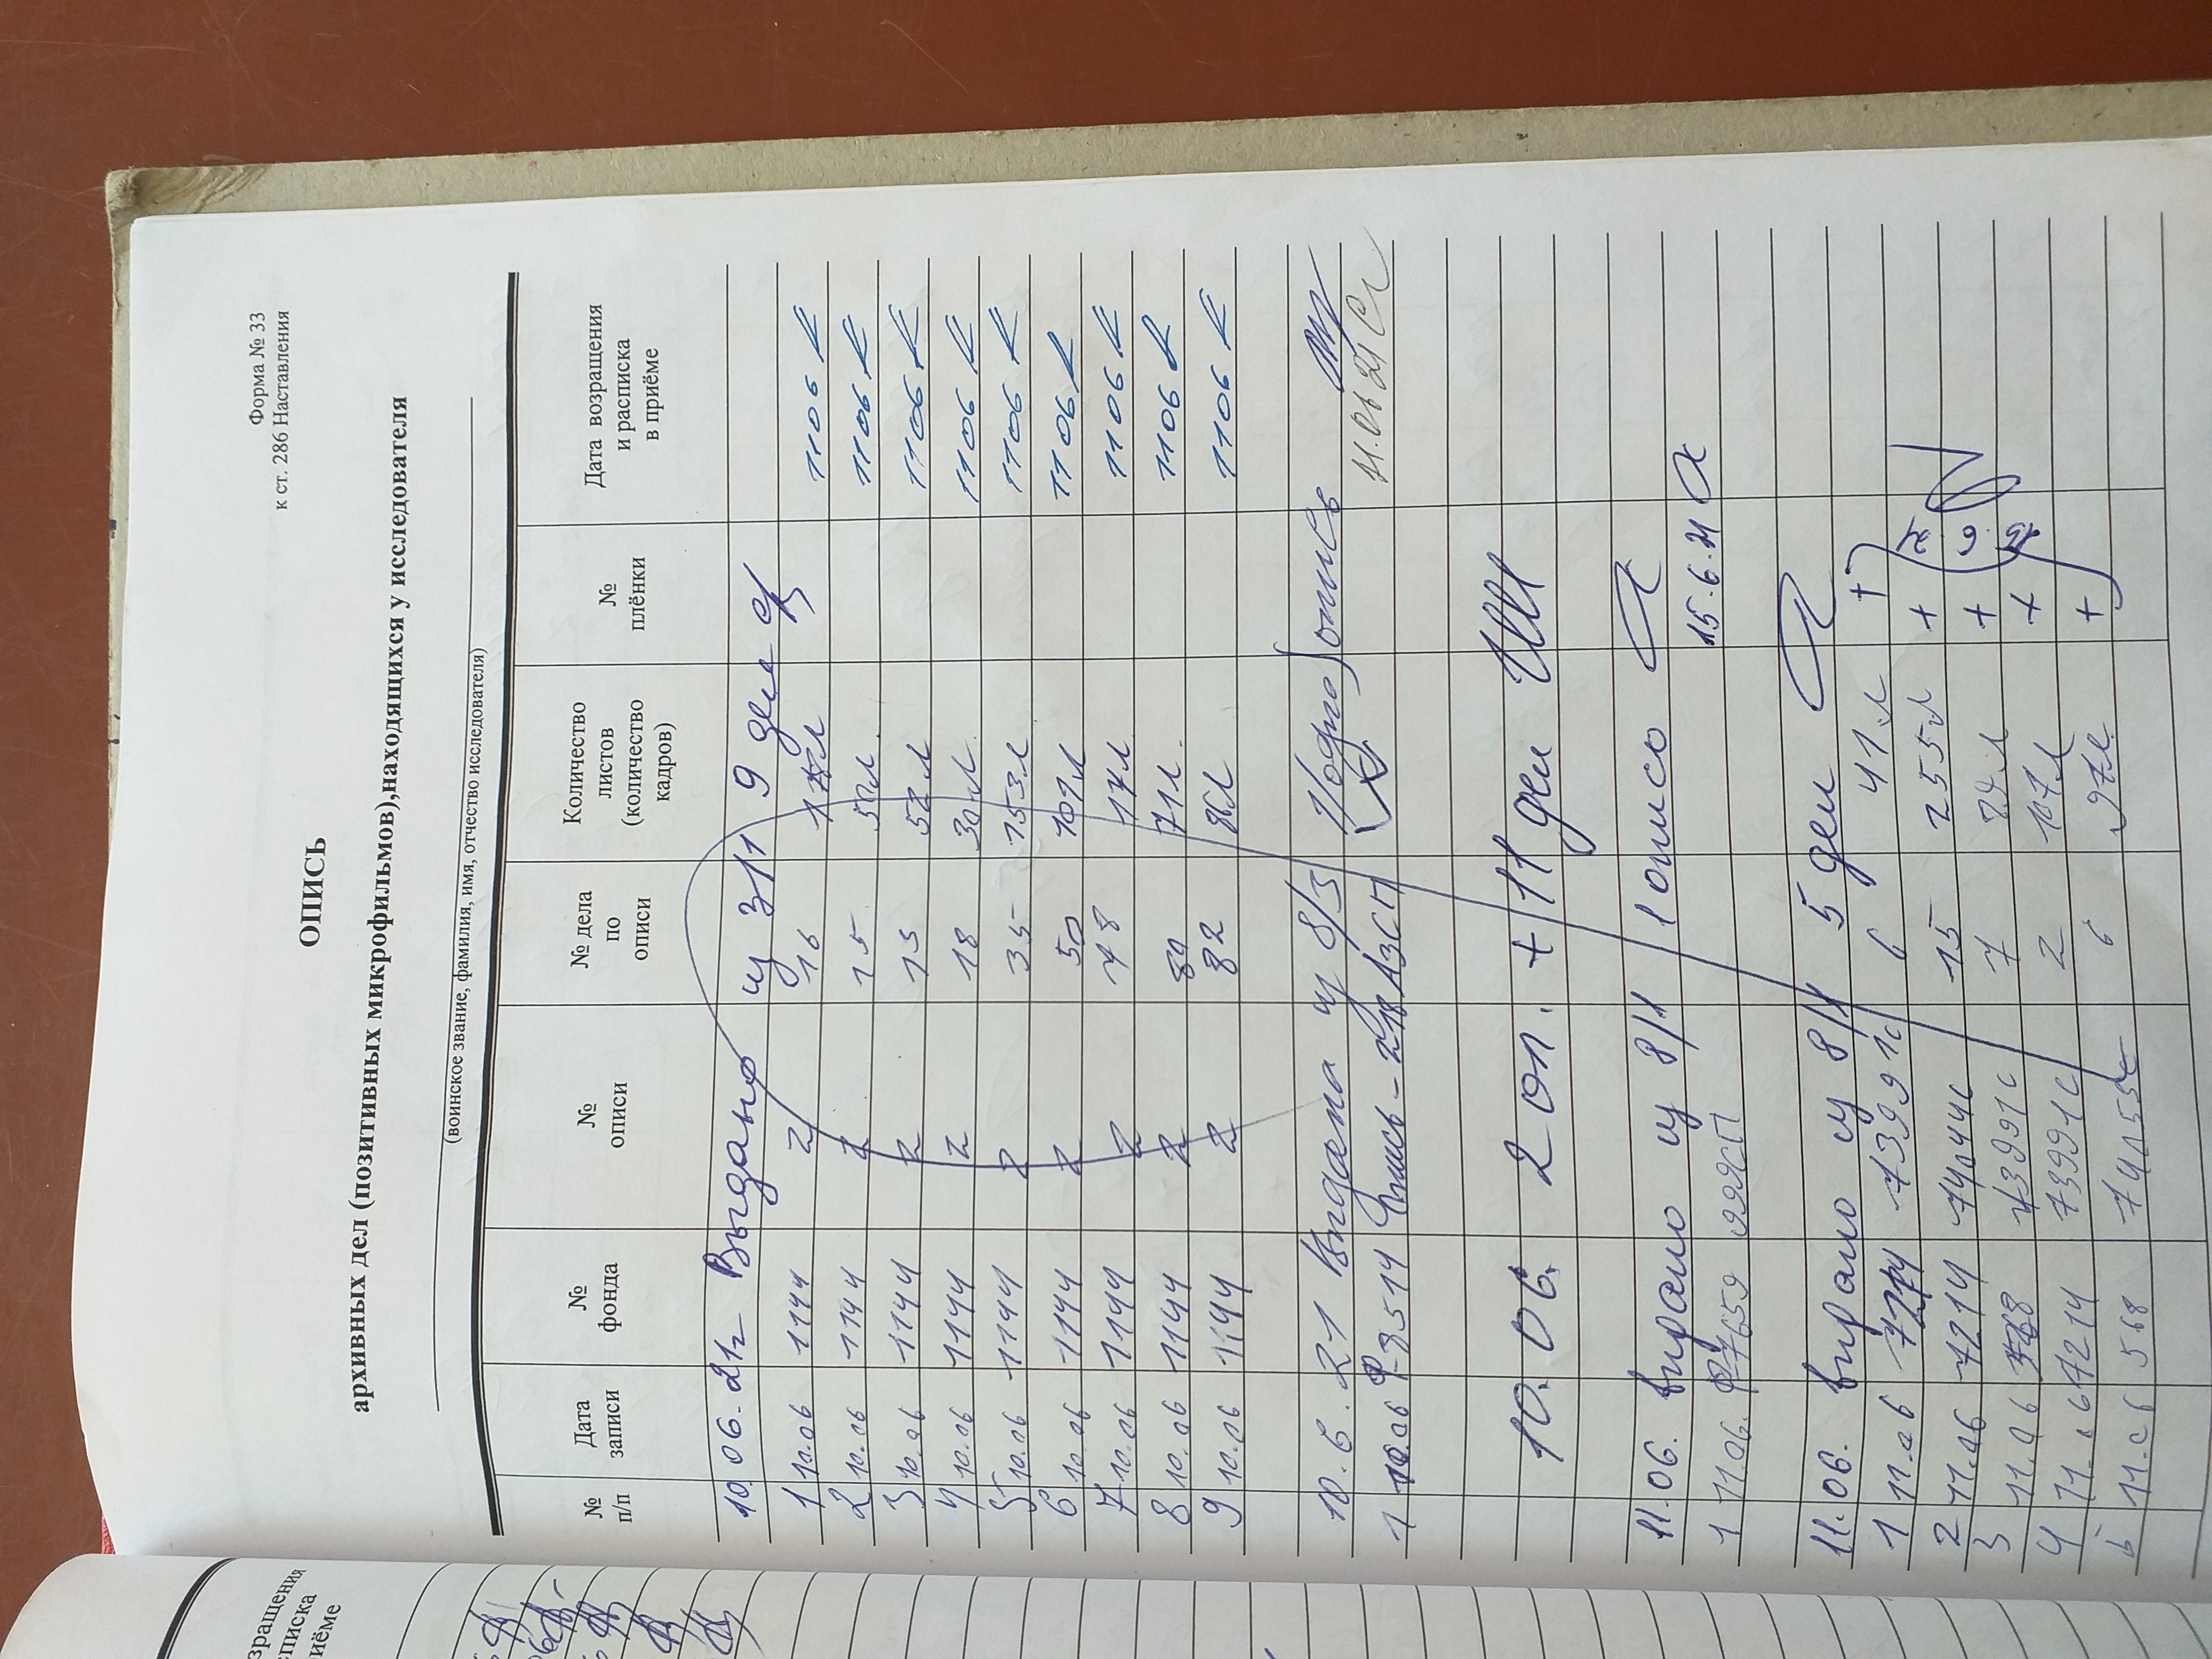 Форма № 33
к ст. 286 Наставления
ОПИСЬ
архивных дел (позитивных микрофильмов),находящихся у исследователя
(воинское звание, фамилия, имя, отчество исследователя)
№ п/п
Дата записи
№ фонда
№ описи
№ дела по описи
Количество листов (количество кадров)
№ плёнки
Дата возвращения и расписка в приёме
10.06.21г Выдано из 3/1 9 дел
1 10.06 1144 2 16 1106
2 10.06 1144 2 15 1106
3 10.06 1144 2 13 1106
4 10.06 1144 2 18 30л 1106
5 10.06 1144 2 35 153л 1106
6 10.06 1144 2 50 109л 1106
7 10.06 1144 2 78 117л 1106
8 10.06 1144 2 80 71л. 1106
9 10.06 1144 2 82 86л 1106
10.6.21 Выдана из 8/3 1
1 10.06 Опись - 11.06 21
10.06. 2 оп. + 11 дел
11.06. выдано из 8/1 1 опись
1 11.06. 15.6.21
11.06. выдано из 8/1 5 дел
1 11.06 7214 73991с 6 41л +
2 11.06 7214 74044с 15 255л +
3 11.06 73991с 7 +
4 11.06 7214 73991с 2 107л +
5 11.06 568 6 97л. +
зращения
списка
риёме